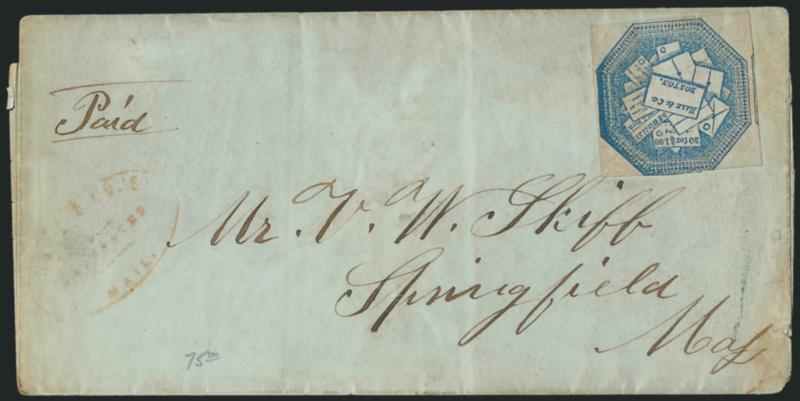 Paid
HALE & Co.
BOSTON.
20 for $1.00
& CO.'S
MAIL.
Mr. V. W. Skiff
Springfield
Mass
75